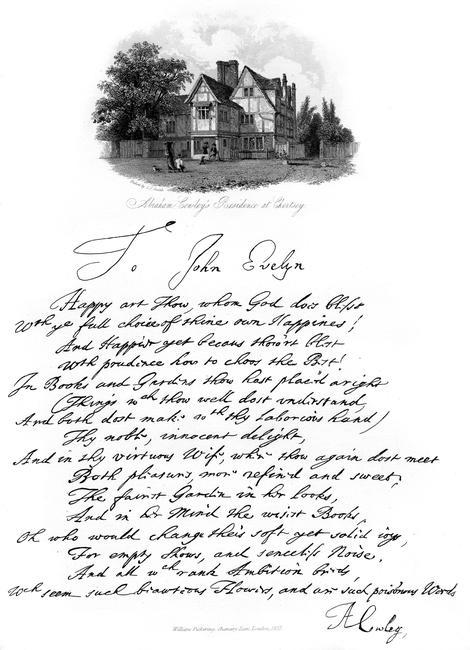 Abraham Cowley's Residence at Chertsey.
To John Evelyn
Happy art Thow, whom God does bless
Wth ye full choice of thine own Happines!
And Happier yet becaus thou'rt blest
Wth prudence how to choos the Best!
In Books and Gardens thow hast plac'd aright
(Things wch thow well dost understand,
And both dost make wth thy laborious hand)
Thy noble, innocent delight,
And in thy virtuous Wife, wher thou again dost meet
Both pleasurs more refin'd and sweet;
The fairest Garden in her looks,
And in her Mind the wisest Books,
Oh who would change theis soft yet solid ioys,
For empty Shows, and senceless Noise,
And all wch rank Ambition birds,
Wch seem such beauteous Flowers, and are such poisonous Weeds
ACowley,
William Pickering, Chancery Lane, London, 1827.